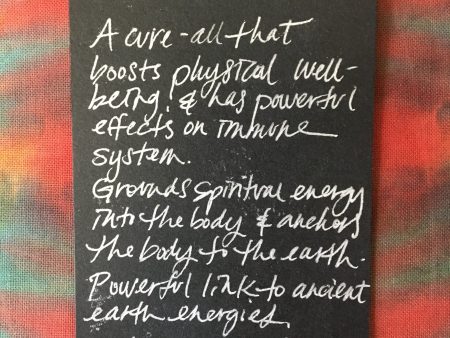 A cure-all that
boosts physical well-
being & has powerful
effects on immune
system.
Grounds spiritual energy
into the body & anchors
the body to the earth.
Powerful link to ancient
earth energies.